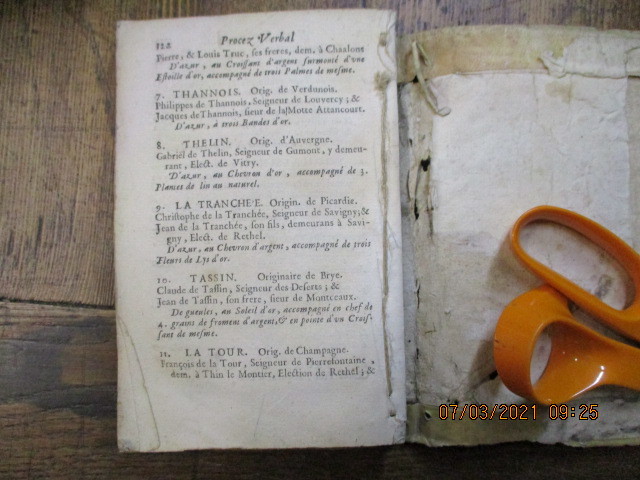 122 Procez Verbal
Pierre, & Louis Truc, ses freres, dem. à Chaalons
D'azur, au Croissant d'argent surmonté d'vne
Estoille d'or, accompagné de trois Palmes de mesme.
7. THANNOIS. Orig. de Verdunois.
Philippes de Thannois, Seigneur de Louvercy; &
Jacques de Thannois, sieur de la Motte Attancourt.
D'azur, à trois Bandes d'or.
8. THELIN. Orig. d'Auvergne.
Gabriel de Thelin, Seigneur de Gumont, y demeu-
rant, Elect. de Vitry.
D'azur, au Chevron d'or, accompagné de 3.
Plantes de lin au naturel.
9. LA TRANCHE'E. Origin. de Picardie.
Christophe de la Tranchée, Seigneur de Savigny; &
Jean de la Tranchée, son fils, demeurans à Savi-
gny, Elect. de Rethel.
D'azur, au Chevron d'argent, accompagné de trois
Fleurs de Lys d'or.
10. TASSIN. Originaire de Brye.
Claude de Tassin, Seigneur des Deserts; &
Jean de Tassin, son frere, sieur de Montceaux.
De gueules, au Soleil d'or, accompagné en chef de
4. grains de froment d'argent, & en pointe d'vn Crois-
sant de mesme.
11. LA TOUR. Orig. de Champagne.
François de la Tour, Seigneur de Pierrefontaine,
dem. à Thin le Montier, Election de Rethel; &
07/03/2021 09:25